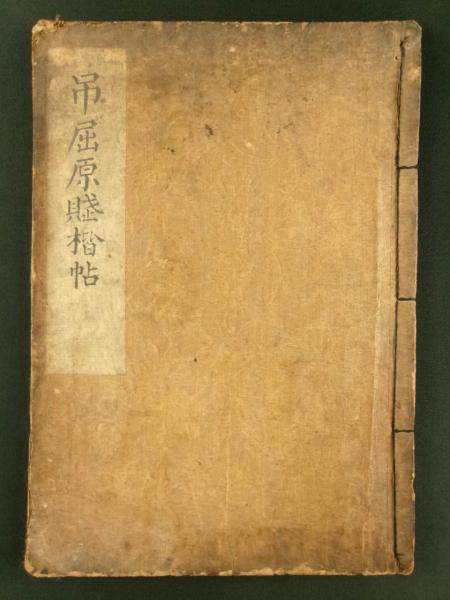 吊屈原賦楷帖